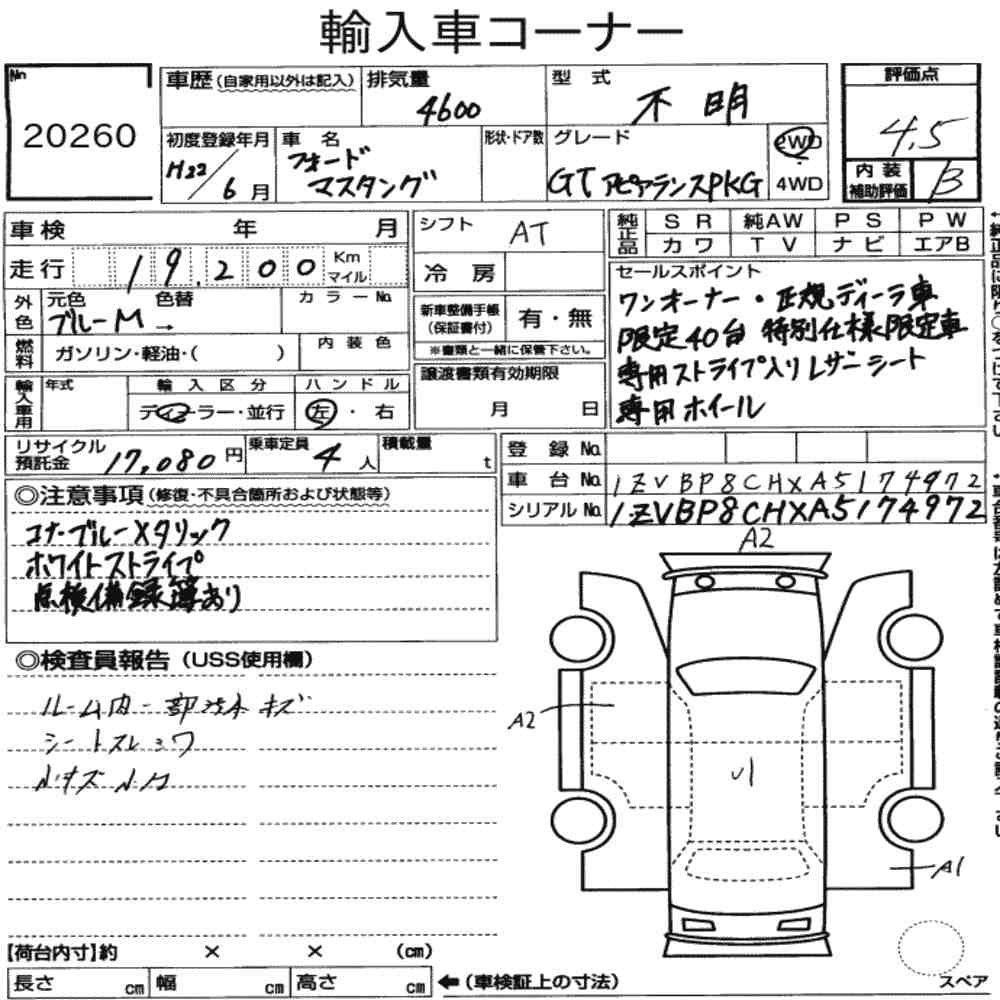 輸入車コーナー
No 20260
車歴 (自家用以外は記入) 排気量 4600 型式 不明 評価点 4.5
初度登録年月 H22/6月 車名 フォード マスタング 形状・ドア数 グレード GT アピアランスPKG 2WD 4WD 内装補助評価 B
車検 年 月 シフト AT 純正品 SR 純AW PS PW
カワ TV ナビ エアB
走行 19,200 Km マイル 冷房
セールスポイント
ワンオーナー・正規ディーラ車
限定40台 特別仕様限定車
専用ストライプ入りレザーシート
専用ホイール
外色 元色 色替 カラーNo.
ブルーM →
新車整備手帳(保証書付) 有・無
※書類と一緒に保管下さい。
燃料 ガソリン・軽油・( ) 内装色
輸入車用 年式 輸入区分 ハンドル
ディーラー・並行 左・右
譲渡書類有効期限
月 日
リサイクル預託金 17,080円 乗車定員 4人 積載量 t
登録No.
車台No. 1ZVBP8CHXA5174972
シリアルNo. 1ZVBP8CHXA5174972
◎注意事項 (修復・不具合箇所および状態等)
コナブルーメタリック
ホワイトストライプ
点検備録簿あり
◎検査員報告 (USS使用欄)
ルーム内一部 キズ
シートスレ シワ
小キズ
A2
A2
A1
【荷台内寸】約 × × (cm)
長さ cm 幅 cm 高さ cm ←(車検証上の寸法)
スペア